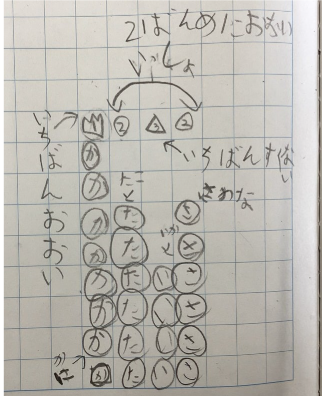 2ばんめにおおい
いっしょ
② ③ ②
いちばんおおい
いちばんすくない
たこ
と
さかな
いか
と
か
か
か た さ
か た さ
か た い さ
か た い さ
か た い さ
か た い さ